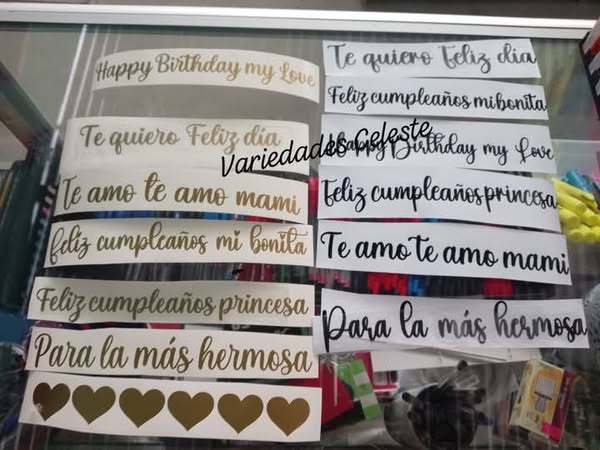 Happy Birthday my Love
Te quiero Feliz día
Te amo te amo mami
feliz cumpleaños mi bonita
Feliz cumpleaños princesa
Para la más hermosa
Te quiero Feliz día
Feliz cumpleaños mi bonita
Variedades Celeste
Happy Birthday my Love
Feliz cumpleaños princesa
Te amo te amo mami
Para la más hermosa